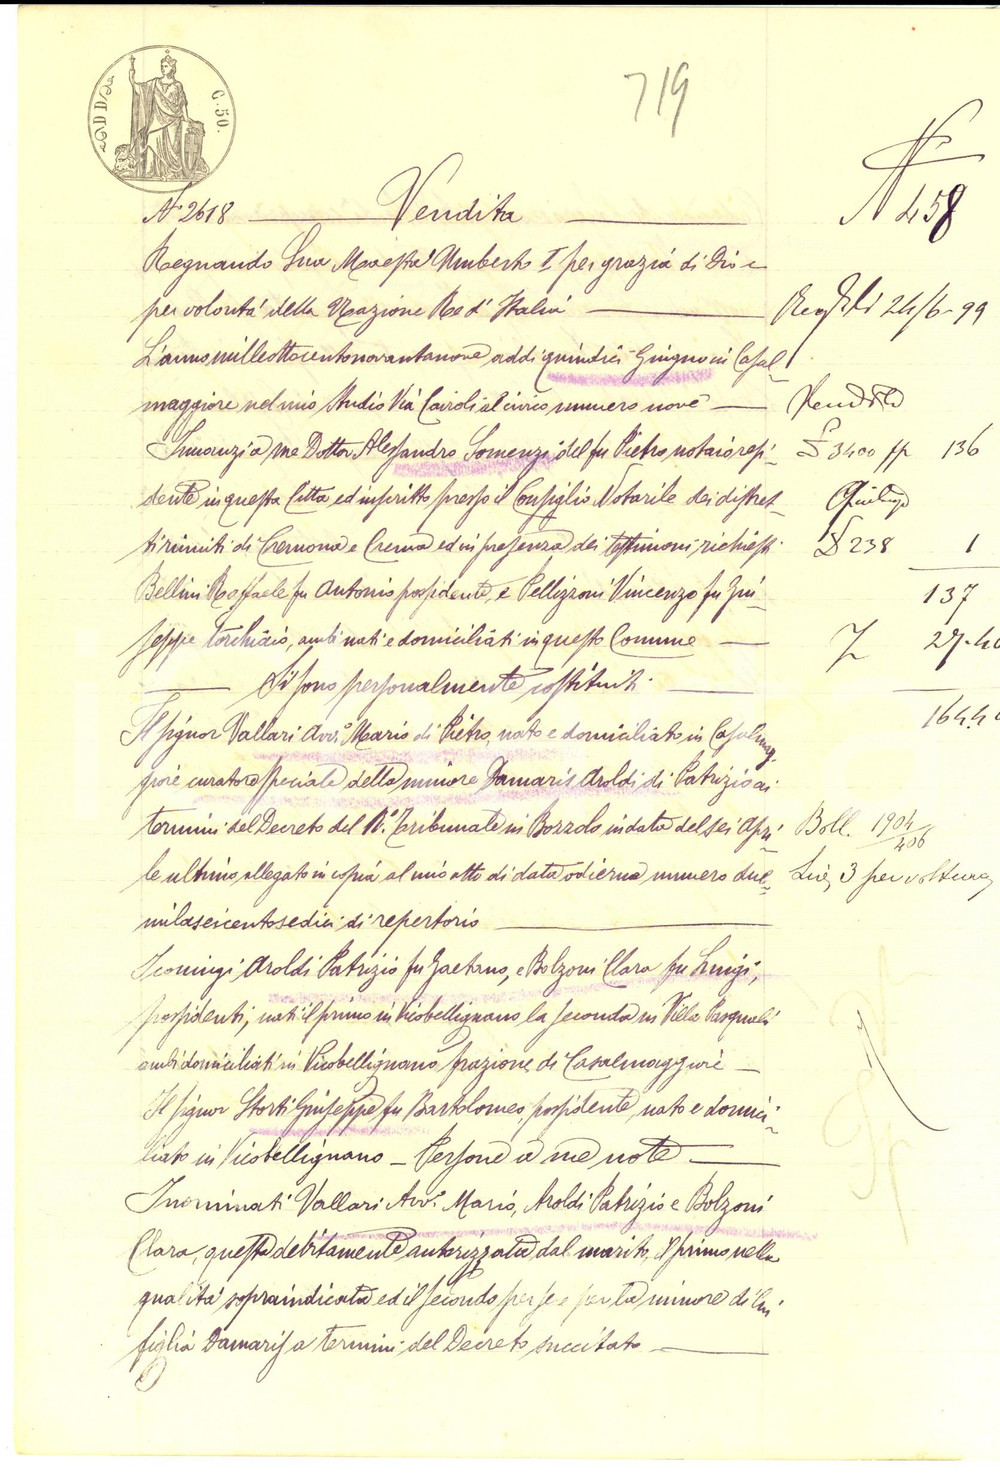 C. 50.
719
N° 458
N° 2618 Vendita
Regnando Sua Maestà Umberto I per grazia di Dio e
per volontà della Nazione Re d'Italia
24/6-99
L'anno milleottocentonovantanove addì quindici Giugno in Casal-
maggiore nel mio Studio Via Cairoli al civico numero nove
Vendita
Innanzi a me Dottor Alessandro Somenzi del fu Pietro notaio resi-
£ 3400 136
dente in questa Città ed inscritto presso il Consiglio Notarile dei distret-
Quitanza
ti riuniti di Cremona e Crema ed in presenza dei testimoni richiesti
£ 238 1
Bellini Raffaele fu Antonio possidente, e Pellizzoni Vincenzo fu Giu-
137
seppe, ambi nati e domiciliati in questo Comune
27.40
Si sono personalmente costituiti
164.40
Il signor Vallari Avv.° Mario di Pietro, nato e domiciliato in Casalmag-
giore curatore speciale della minore Damaris Aroldi di Patrizio ai
termini del Decreto del R.° Tribunale in Bozzolo in data del sei Apri-
Boll. 1904/406
le ultimo, allegato in copia al mio atto di data odierna numero due-
Lire 3 per voltura
milaseicentosedici di repertorio
I coniugi Aroldi Patrizio fu Gaetano, e Bolzoni Clara fu Luigi,
possidenti, nati il primo in Vicobellignano la seconda in Villa Pasquali
ambi domiciliati in Vicobellignano frazione di Casalmaggiore
Il signor Storti Giuseppe fu Bartolomeo, possidente, nato e domici-
liato in Vicobellignano – Persone a me note
I nominati Vallari Avv.° Mario, Aroldi Patrizio e Bolzoni
Clara, questa debitamente autorizzata dal marito, il primo nella
qualità sopraindicata ed il secondo per se e per la minore di lui
figlia Damaris a termini del Decreto succitato